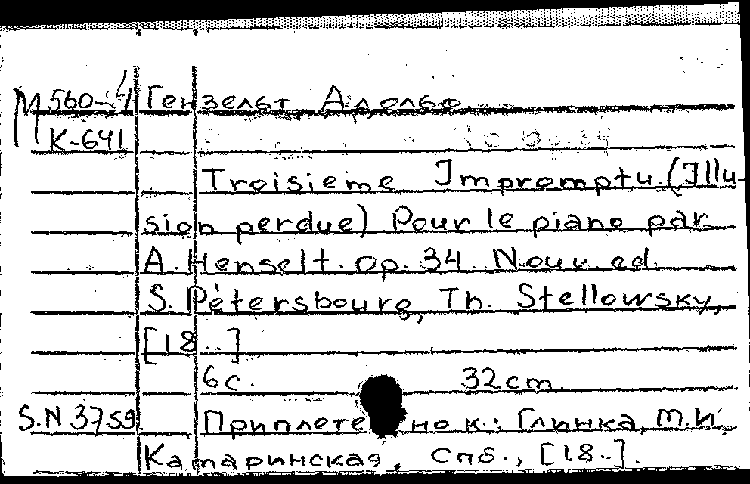 М560-4 Гензельт, Адольф.
К-641
Troisieme Impromptu. (Illu-
sion perdue) Pour le piano par
A. Henselt. op. 34. Nouv. ed.
S. Pétersbourg, Th. Stellowsky,
[18..]
6с. 32cm.
S.N 3759 Приплетено к: Глинка, М.И.
Камаринская, Спб., [18..].